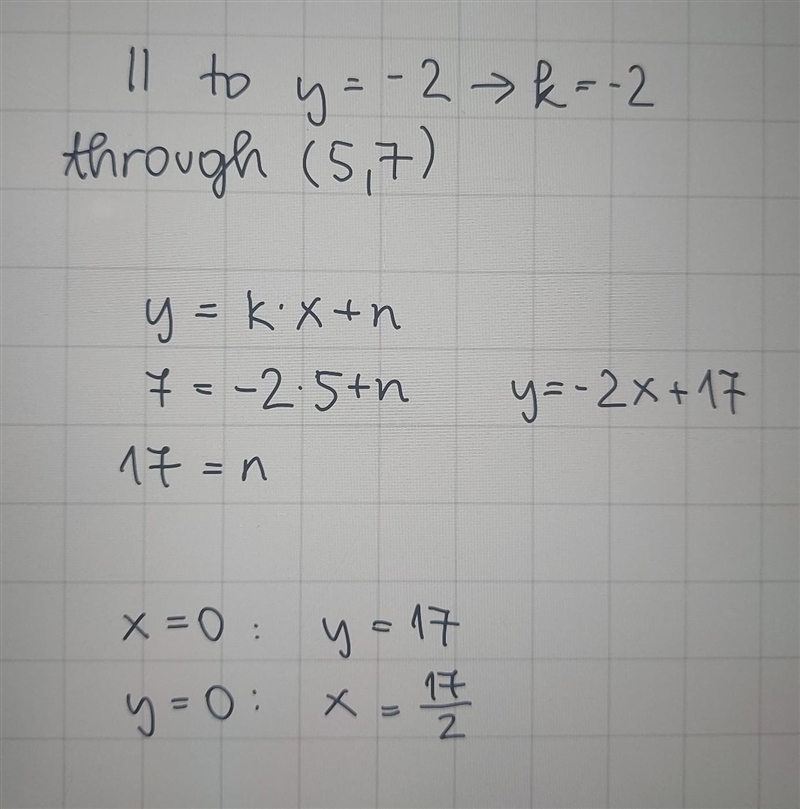 || to y = -2 → k = -2
through (5,7)
y = k·x+n
7 = -2·5+n    y=-2x+17
17 = n
x=0 :    y = 17
y=0 :    x = 17/2